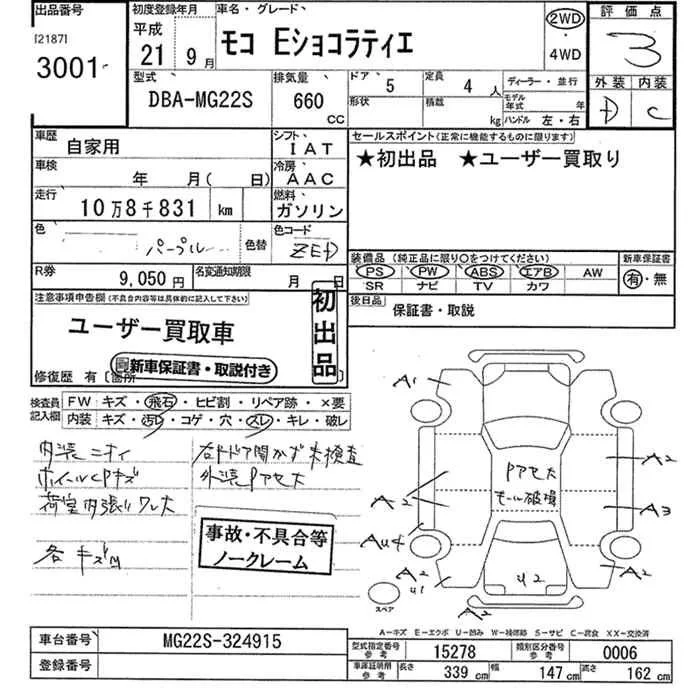 出品番号 初度登録年月 車名・グレード、 評価点
[2187]
3001
平成
21年 9月
モコ Eショコラティエ
2WD
・
4WD
3
型式 排気量 ドア 5 定員 4人 ディーラー・並行
DBA-MG22S 660 CC
形状 積載 kg モデル年式 年
ハンドル 左・右
外装 内装
D C
車歴 自家用 シフト IAT
セールスポイント(正常に機能するものに限ります)
★初出品 ★ユーザー買取り
車検 年 月( 日) 冷房 AAC
走行 10万8千831 km 燃料 ガソリン
色 パープル 色替 色コード ZED
装備品(純正品に限り○をつけてください) 新車保証書
PS PW ABS エアB AW 有・無
SR ナビ TV カワ
R券 9,050円 名変通知期限 月 日
後日品 保証書・取説
注意事項申告欄(不具合内容等は具体的に記入して下さい)
初出品
ユーザー買取車
新車保証書・取説付き
修復歴 有[箇所
検査員記入欄 FW キズ・飛石・ヒビ割・リペア跡・×要
内装 キズ・汚レ・コゲ・穴・スレ・キレ・破レ
内装ニオイ 右ドア開かず未検査
ホイールCPキズ 外装Pアセ大
荷室内張りワレ大
各キズ凹
事故・不具合等
ノークレーム
A1
A2
Pアセ大
モール破損
A2 A3
AU4
A2 U1 U2 A2
A2
スペア
A-キズ E-エクボ U-凹み W-補修跡 S-サビ C-腐食 XX-交換済
車台番号 MG22S-324915
型式指定番号 参考 15278 類別区分番号 参考 0006
登録番号
車庫証明用 参考 長さ 339 cm 幅 147 cm 高さ 162 cm